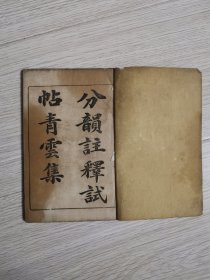 分韻註釋試
帖青雲集